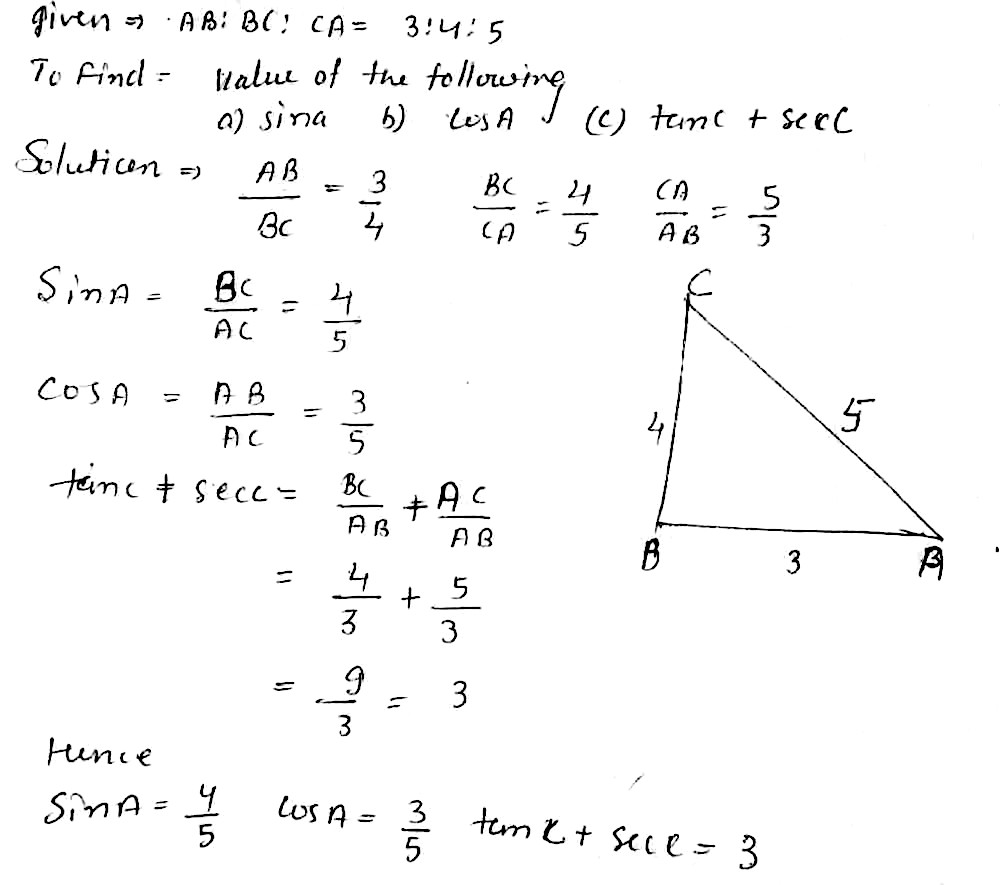 given ⇒ AB: BC: CA = 3:4:5
To find = Value of the following
a) sina b) cosA (c) tanc + secC
Solution ⇒ AB/BC = 3/4 BC/CA = 4/5 CA/AB = 5/3
SinA = BC/AC = 4/5
COSA = AB/AC = 3/5
tanc + secc = BC/AB + AC/AB
= 4/3 + 5/3
= 9/3 = 3
C
4
5
B
3
A
Hence
SinA = 4/5 cosA = 3/5 tan c + sec c = 3